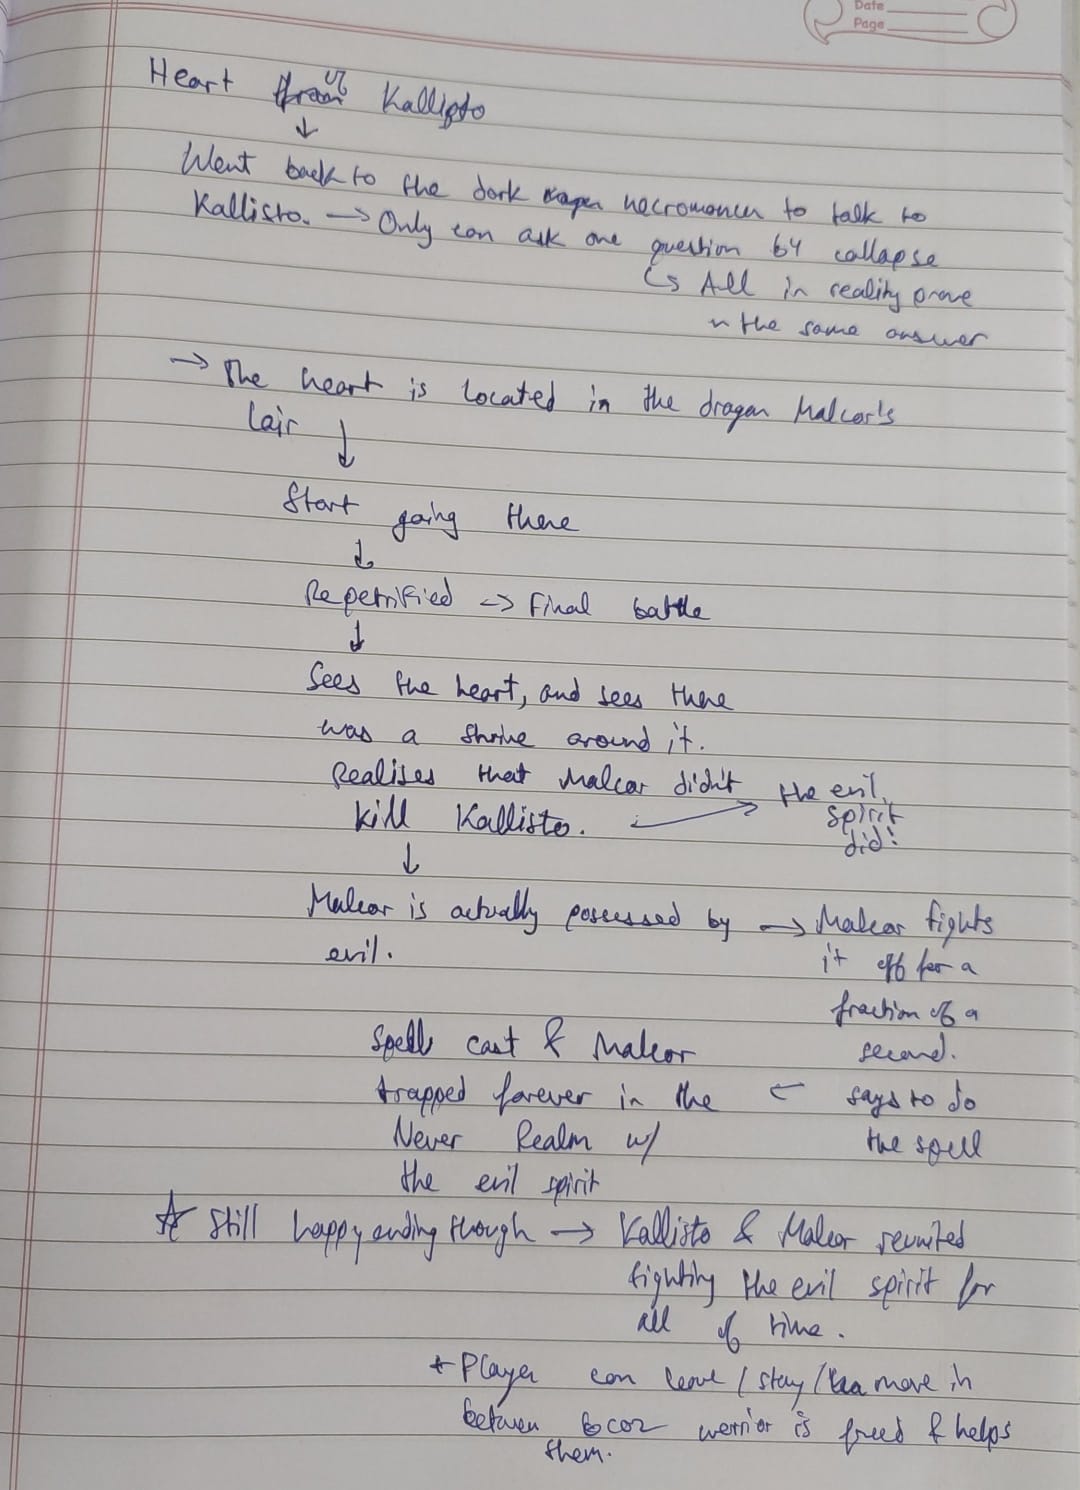 Date
Page
Heart of Kallisto
↓
Went back to the dark necromancer to talk to
Kallisto. → Only can ask one question b4 collapse
↳ All in reality prove
the same answer
→ The heart is located in the dragon Malcor's
lair ↓
Start going there
↓
Repetrified → Final battle
↓
Sees the heart, and sees there
was a shrine around it.
Realises that Malcor didn't → the evil
kill Kallisto. spirit
did!
↓
Malcor is actually possessed by → Malcor fights
evil. it off for a
fraction of a
second.
Spell cast & Malcor
trapped forever in the ← says to do
Never Realm w/ the spell
the evil spirit
☆ Still happy ending though → Kallisto & Malcor reunited
fighting the evil spirit for
all of time.
* Player can leave / stay / move in
between bcoz warrior is freed & helps
them.